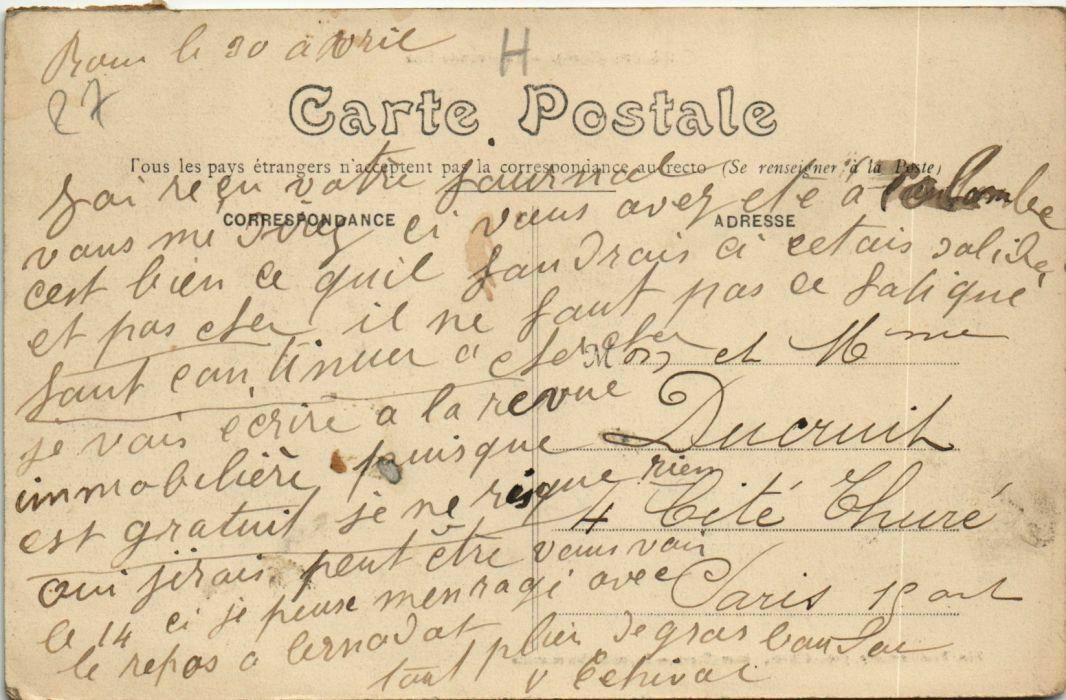 le 30 avril
H
27
Carte Postale
Tous les pays étrangers n'acceptent pas la correspondance au recto (Se renseigner à la Poste)
CORRESPONDANCE
ADRESSE
J'ai reçu votre journal
vous me direz ci vous avez eté à
cest bien ce quil faudrais ci cetais solide
et pas cher il ne faut pas ce fatigué
faut continuer a chercher
je vais écrire a la revue
immobilière puisque
est gratuit je ne risque rien
oui jirais peut être vous voir
le 14 ci je peuse avec
le repos a
tout plein de gros
Mons et Mme
Ducruit
4 Cité Thuré
Paris 15 art